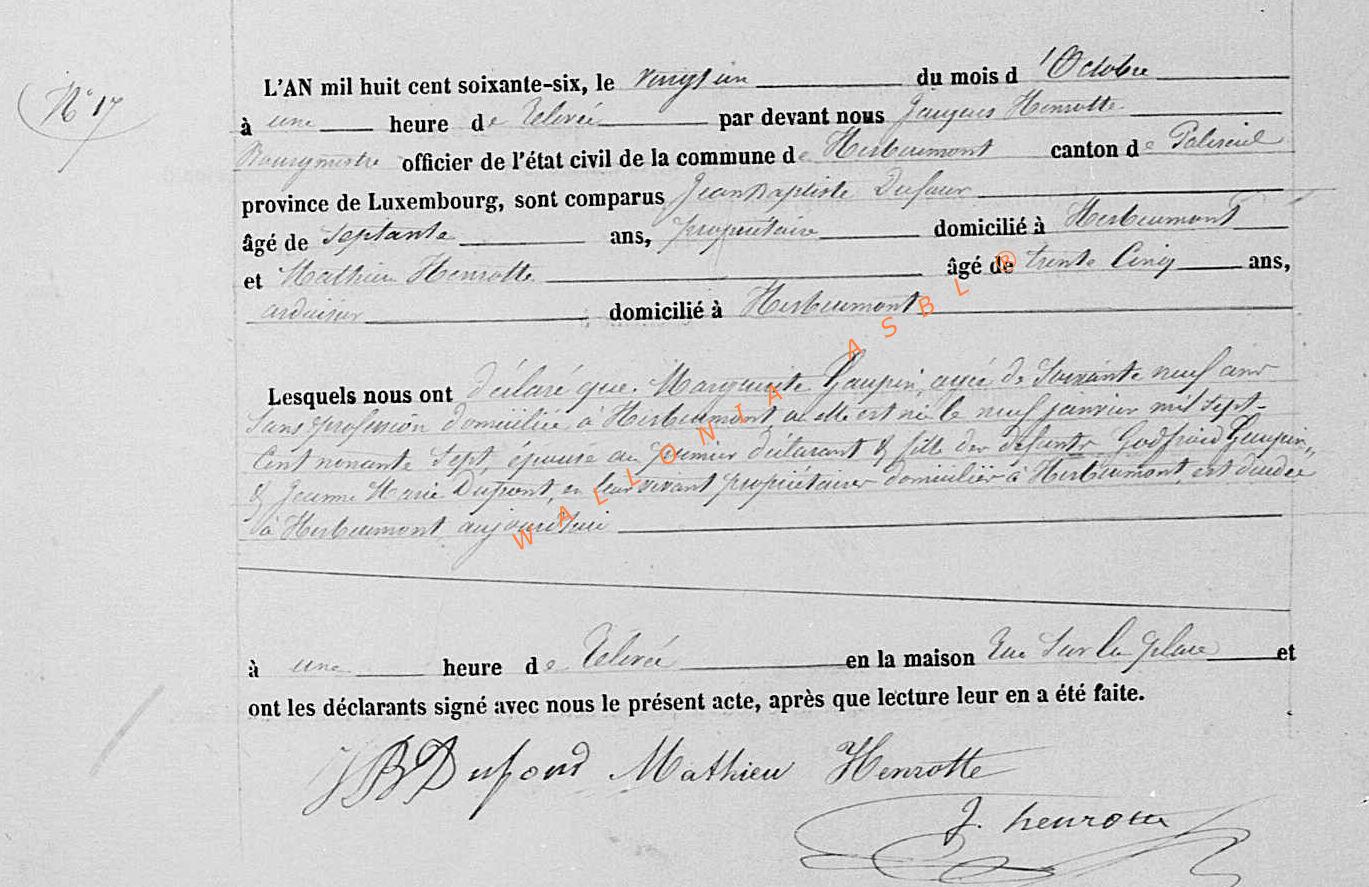 N° 17
L'AN mil huit cent soixante-six, le vingt un du mois d'Octobre
à une heure de Relevée par devant nous Jacques Henrotte
Bourgmestre officier de l'état civil de la commune de Herbeumont canton de Paliseul
province de Luxembourg, sont comparus Jean Baptiste Dufour
âgé de Septante ans, propriétaire domicilié à Herbeumont
et Mathieu Henrotte âgé de trente Cinq ans,
ardoisier domicilié à Herbeumont
Lesquels nous ont déclaré que Marguerite Gaupin, agée de Soixante neuf ans
Sans profession domiciliée à Herbeumont où elle est né le neuf janvier mil Sept
Cent nonante Sept, épouse du premier déclarant & fille des défunts Godfroid Gaupin,
& Jeanne Marie Dupont, en leur vivant propriétaires domiciliés à Herbeumont, est décédée
à Herbeumont aujourd'hui
à une heure de Relevée en la maison Rue Sur la place et
ont les déclarants signé avec nous le présent acte, après que lecture leur en a été faite.
JB Dufour Mathieu Henrotte
J. henrotte
WALLONIA ASBL ®